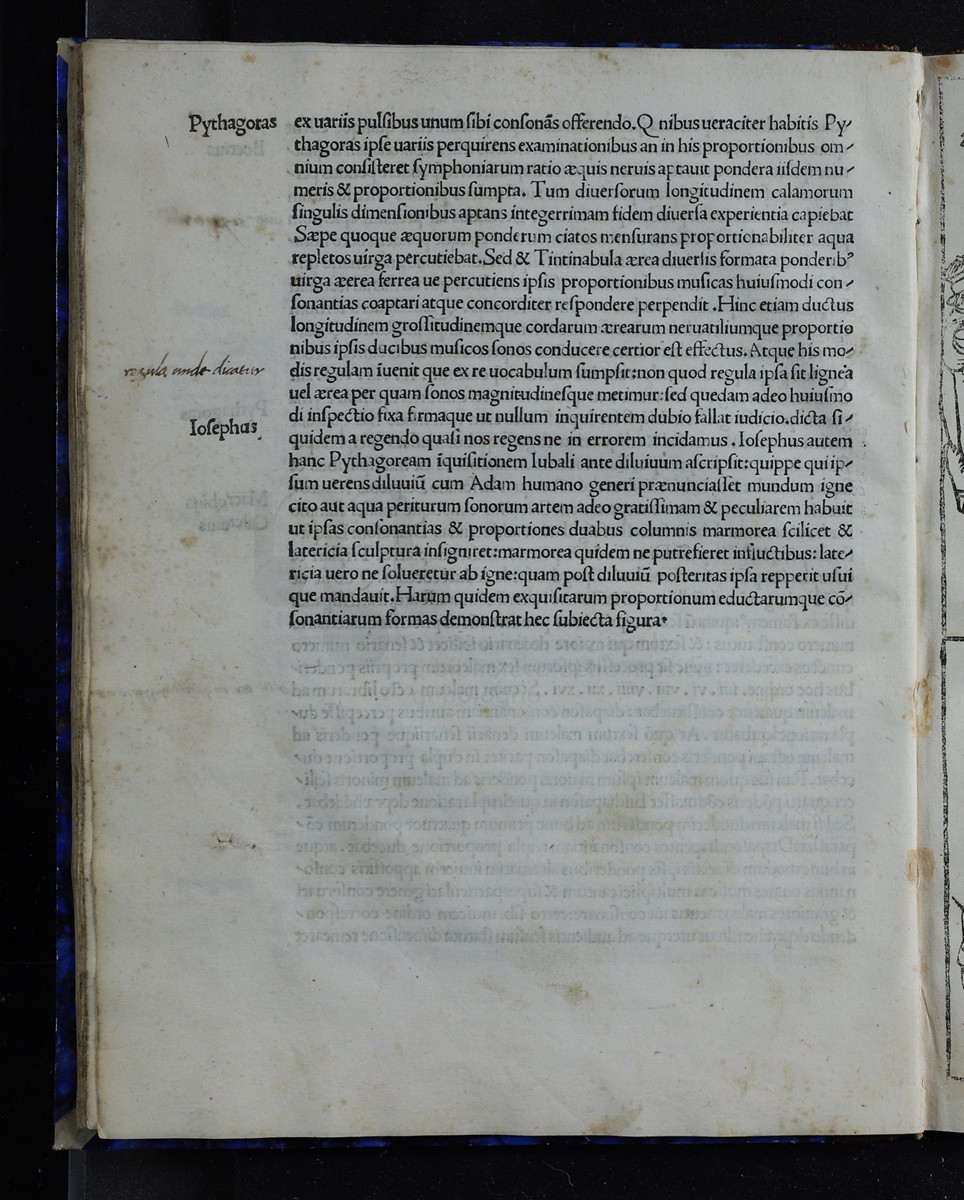 Pythagoras
ex uariis pulſibus unum ſibi conſonās offerendo. Q nibus ueraciter habitis Py-
thagoras ipſe uariis perquirens examinationibus an in his proportionibus om-
nium conſiſteret ſymphoniarum ratio æquis neruis aptauit pondera iiſdem nu-
meris & proportionibus ſumpta. Tum diuerſorum longitudinem calamorum
ſingulis dimenſionibus aptans integerrimam fidem diuerſa experientia capiebat
Sæpe quoque æquorum ponderum ciatos menſurans proportionabiliter aqua
repletos uirga percutiebat. Sed & Tintinabula ærea diuerſis formata ponderibꝰ
uirga æerea ferrea ue percutiens ipſis proportionibus muſicas huiuſmodi con-
ſonantias coaptari atque concorditer reſpondere perpendit. Hinc etiam ductus
longitudinem groſſitudinemque cordarum ærearum neruatiliumque proportio
nibus ipſis ducibus muſicos ſonos conducere certior eſt effectus. Atque his mo-
regula unde dicatur
dis regulam īuenit que ex re uocabulum ſumpſit: non quod regula ipſa ſit lignea
uel ærea per quam ſonos magnitudineſque metimur: ſed quedam adeo huiuſmo
di inſpectio fixa firmaque ut nullum inquirentem dubio fallat iudicio. dicta ſi-
Ioſephus
quidem a regendo quaſi nos regens ne in errorem incidamus. Ioſephus autem
hanc Pythagoream īquiſitionem Iubali ante diluuium aſcripſit: quippe qui ip-
ſum uerens diluuiū cum Adam humano generi prænunciaſſet mundum igne
cito aut aqua periturum ſonorum artem adeo gratiſſimam & peculiarem habuit
ut ipſas conſonantias & proportiones duabus columnis marmorea ſcilicet &
latericia ſculptura inſigniret: marmorea quidem ne putrefieret influctibus: late-
ricia uero ne ſolueretur ab igne: quam poſt diluuiū poſteritas ipſa repperit uſui
que mandauit. Harum quidem exquiſitarum proportionum eductarumque cō-
ſonantiarum formas demonſtrat hec ſubiecta figura.